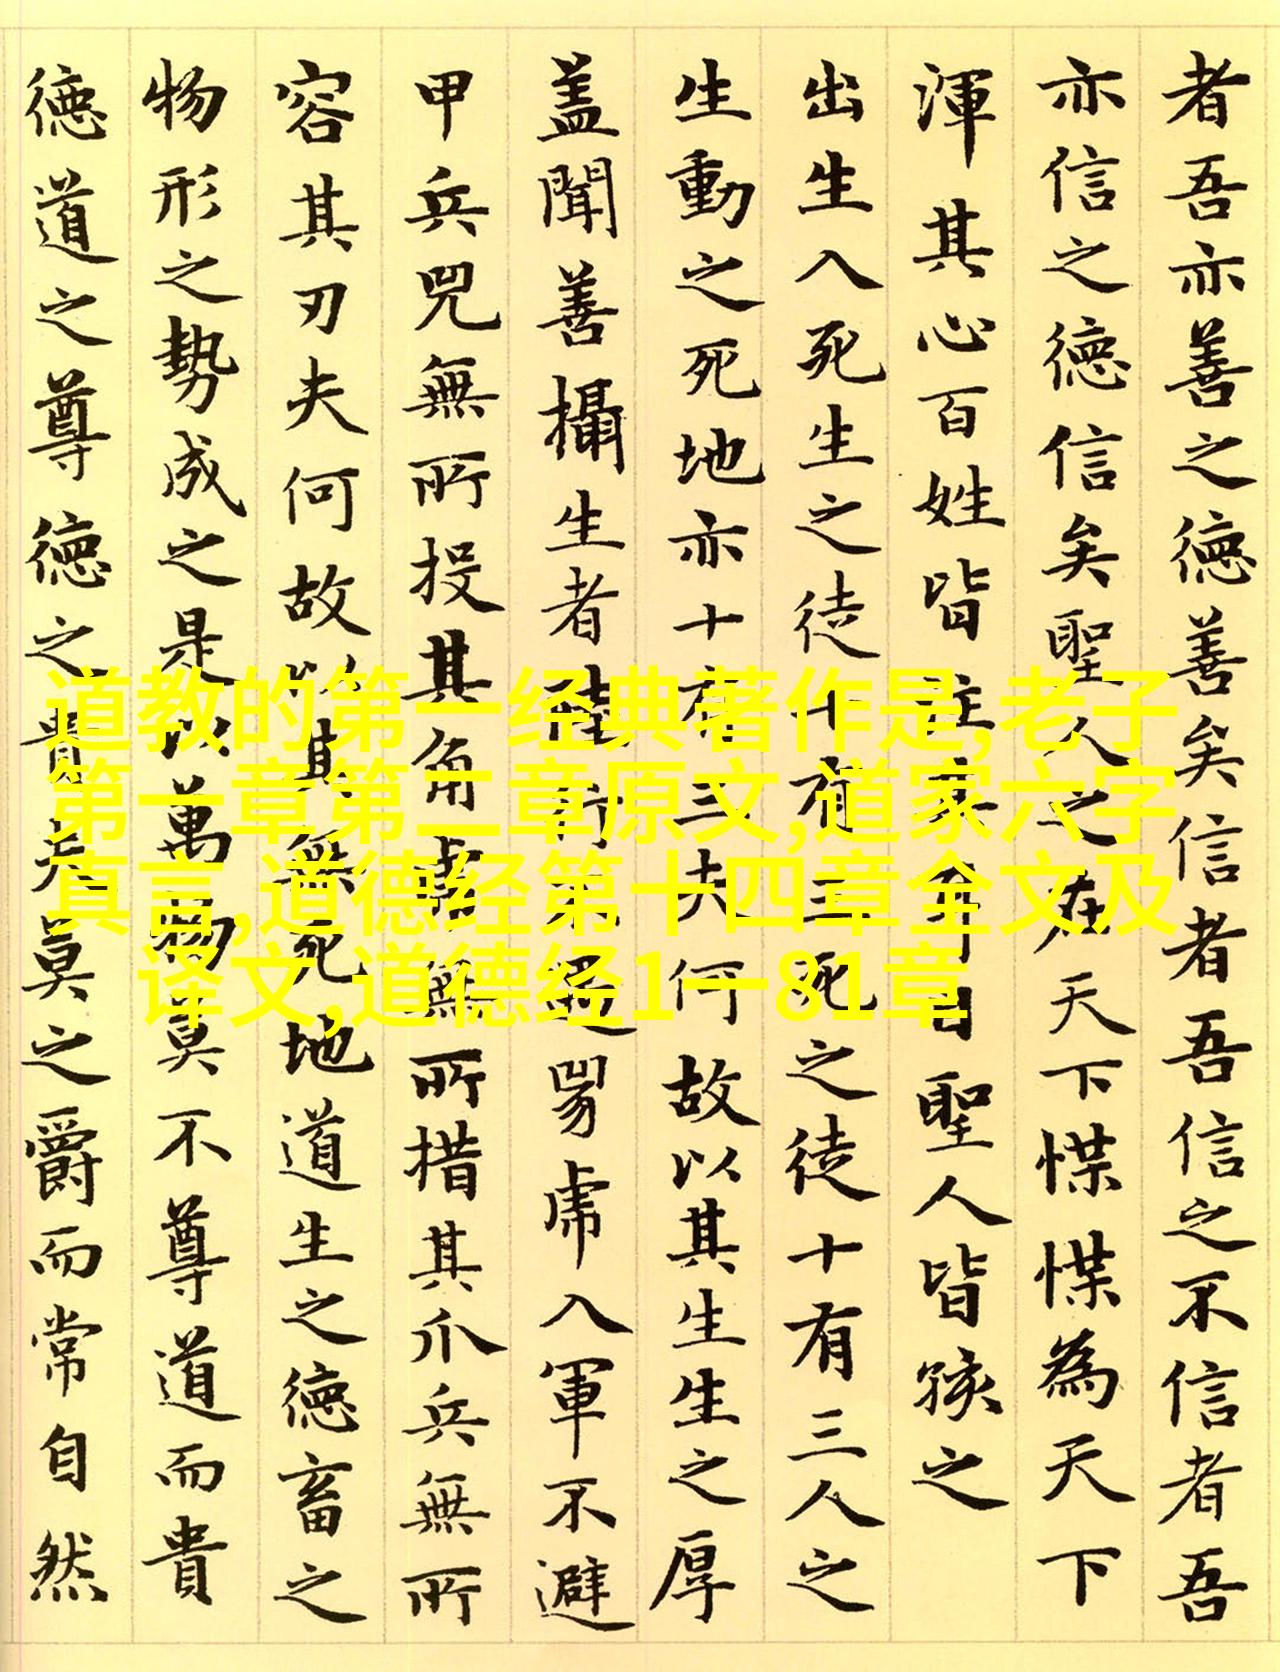 者吾亦善之德善矣信者吾信之不信者吾
亦信之德信矣聖人之在天下惵惵為天下
渾其心百姓皆注其耳目聖人皆孩之
出生入死生之徒十有三死之徒十有三人之
生動之死地亦十有三夫何故以其生生之厚
蓋聞善攝生者陸行不遇兕虎入軍不避
甲兵兕無所投其角虎無所措其爪兵無所
容其刃夫何故以其無死地道生之德畜之
物形之勢成之是以萬物莫不尊道而貴
德道之尊德之貴夫莫之爵而常自然
道教的第一经典著作是,老子
第一章第二章原文,道家六字
真言,道德经第十四章全文及
译文,道德经1一81章